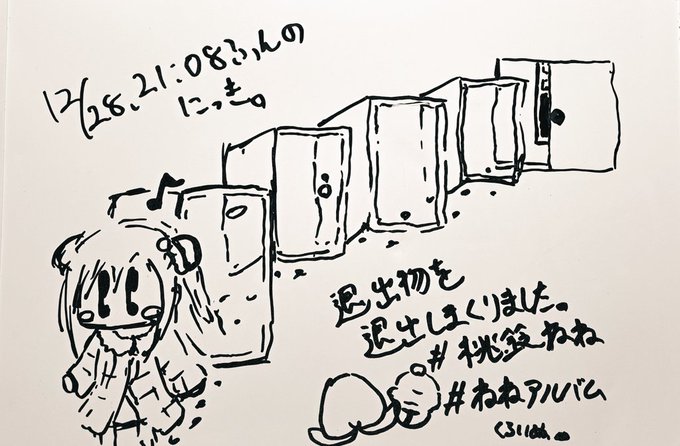 12/28、21:08ふんの
にっき。
退出物を
退出しまくりました。
#桃鈴ねね
#ねねアルバム